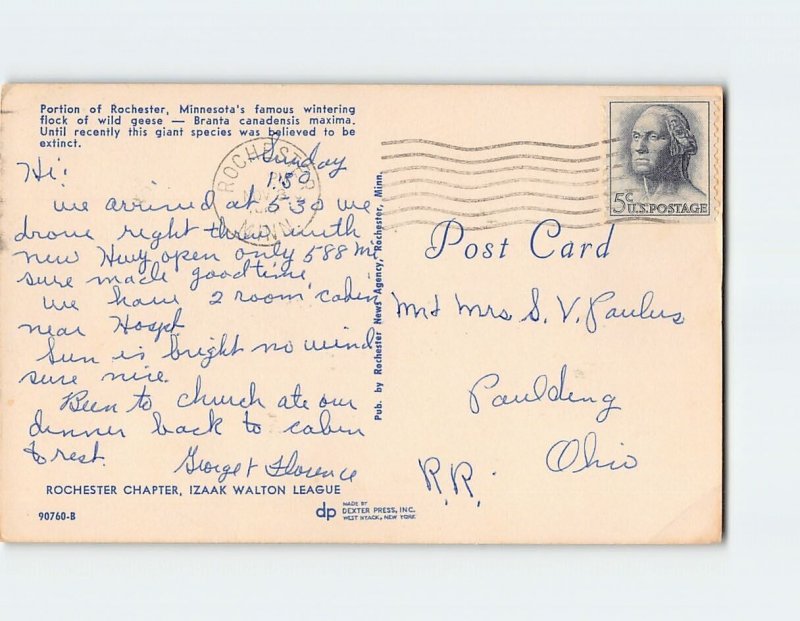 Portion of Rochester, Minnesota's famous wintering
flock of wild geese — Branta canadensis maxima.
Until recently this giant species was believed to be
extinct.
Sunday
1.30
Hi!
we arrived at 5-30 we
drove right thru with
new Hwy open only 588 mi
sure made good time
we have 2 room cabin
near Hospt
Sun is bright no wind
sure nice.
Been to church ate our
dinner back to cabin
to rest.
George & Florence
ROCHESTER CHAPTER, IZAAK WALTON LEAGUE
90760-B
dp
MADE BY
DEXTER PRESS, INC.
WEST NYACK, NEW YORK
Pub. by Rochester News Agency, Rochester, Minn.
ROCHESTER
MINN
5¢ U.S. POSTAGE
Post Card
Mr & Mrs. S. V. Paulus
Paulding
Ohio
R.R.